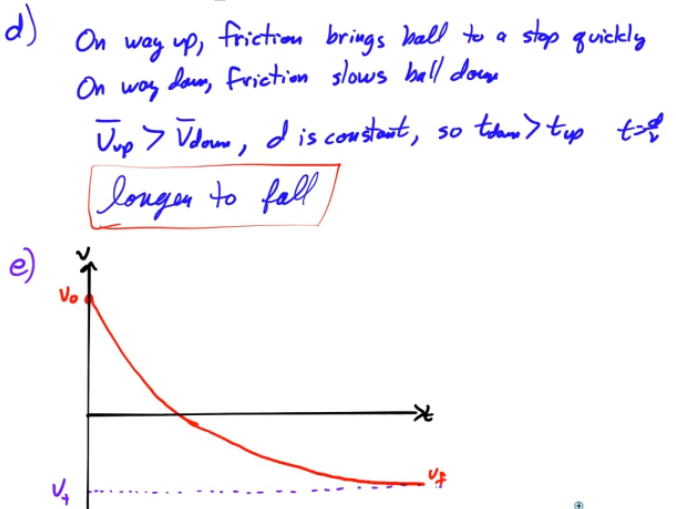 d) On way up, friction brings ball to a stop quickly
On way down, friction slows ball down
V̄up > V̄down, d is constant, so tdown > tup t=d/v
longer to fall
e)
v
V₀
t
Vf
Vt